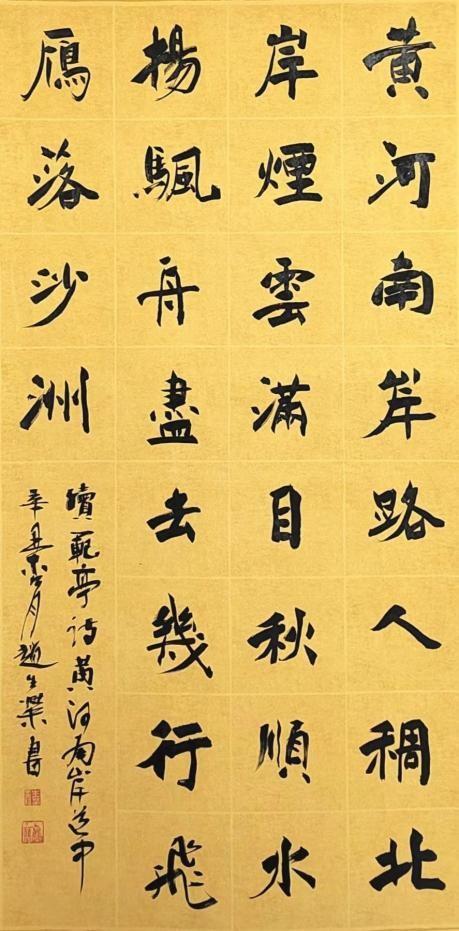 黄河南岸路人稠北
岸煙雲滿目秋順水
揚颿舟盡去幾行飛
鴈落沙洲
續範亭詩黄河南岸道中
辛丑 月趙生 書